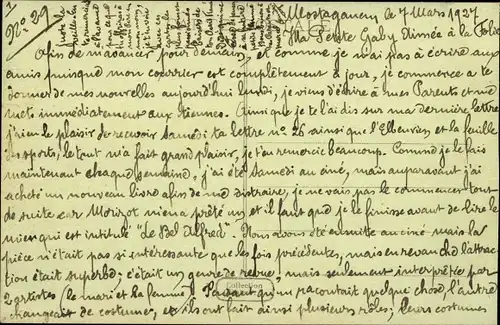 1
N° 29
Mostaganem le 7 Mars 1927
Ma Petite Gaby Aimée à la Folie
Afin de m'avancer pour demain, et comme je n'ai pas à écrire aux
amis puisque mon courrier est complètement à jour, je commence a te
donner de mes nouvelles aujourd'hui lundi, je viens d'écrire à mes Parents et me
mets immédiatement aux tiennes. Ainsi que je te l'ai dis sur ma dernière lettre
j'ai eu le plaisir de recevoir Samedi ta lettre n° 26 ainsi que l'Elbeuvien et la feuille
des sports, le tout m'a fait grand plaisir, je t'en remercie beaucoup. Comme je le fais
maintenant chaque semaine, j'ai été Samedi au ciné, mais auparavant j'ai
acheté un nouveau livre afin de me distraire, je ne vais pas le commencer tout
de suite car Morizot m'en a prêté un et il faut que je le finisse avant de lire le
mien qui est intitulé "Le Bel Alfred". Nous avons été ensuite au ciné mais la
pièce n'était pas si intéressante que les fois précédentes, mais en revanche l'attrac
tion était superbe; c'était un genre de revue, mais seulement interprétée par
2 artistes (le mari et la femme). Pendant qu'un racontait quelque chose, l'autre
changeait de costume, et ils ont fait ainsi plusieurs rôles; leurs costumes
Collection